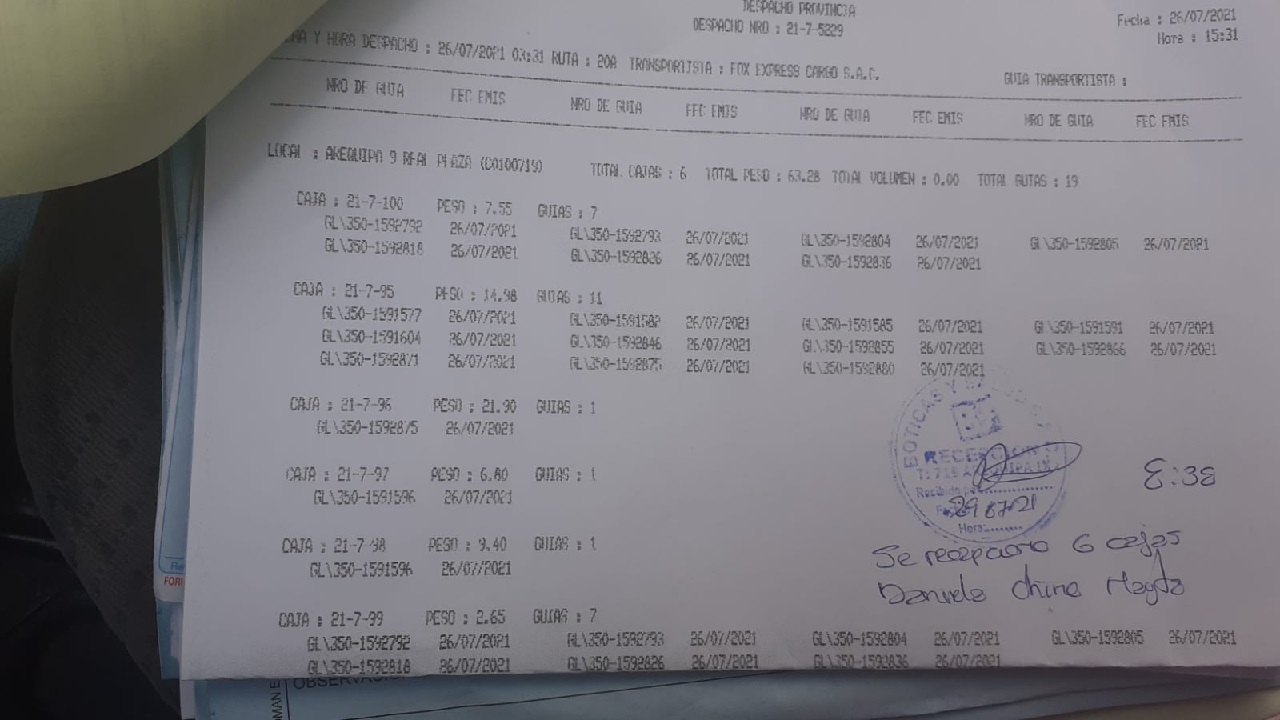 DESPACHO PROVINCIA
DESPACHO NRO : 21-7-5229
Fecha : 26/07/2021
Hora : 15:31
Y HORA DESPACHO : 26/07/2021 03:31 RUTA : 20A TRANSPORTISTA : FOX EXPRESS CARGO S.A.C. GUIA TRANSPORTISTA :
NRO DE GUIA FEC EMIS NRO DE GUIA FEC EMIS NRO DE GUIA FEC EMIS NRO DE GUIA FEC EMIS
LOCAL : AREQUIPA 9 REAL PLAZA (C0100719) TOTAL CAJAS : 6 TOTAL PESO : 63.28 TOTAL VOLUMEN : 0.00 TOTAL GUIAS : 19
CAJA : 21-7-100 PESO : 7.55 GUIAS : 7
GL\350-1592792 26/07/2021 GL\350-1592793 26/07/2021 GL\350-1592804 26/07/2021 GL\350-1592805 26/07/2021
GL\350-1592818 26/07/2021 GL\350-1592826 26/07/2021 GL\350-1592836 26/07/2021
CAJA : 21-7-95 PESO : 14.98 GUIAS : 11
GL\350-1591577 26/07/2021 GL\350-1591582 26/07/2021 GL\350-1591585 26/07/2021 GL\350-1591591 26/07/2021
GL\350-1591604 26/07/2021 GL\350-1592846 26/07/2021 GL\350-1592855 26/07/2021 GL\350-1592866 26/07/2021
GL\350-1592871 26/07/2021 GL\350-1592875 26/07/2021 GL\350-1592880 26/07/2021
CAJA : 21-7-96 PESO : 21.90 GUIAS : 1
GL\350-1592875 26/07/2021
CAJA : 21-7-97 PESO : 6.80 GUIAS : 1
GL\350-1591596 26/07/2021
CAJA : 21-7-98 PESO : 9.40 GUIAS : 1
GL\350-1591596 26/07/2021
CAJA : 21-7-99 PESO : 2.65 GUIAS : 7
GL\350-1592792 26/07/2021 GL\350-1592793 26/07/2021 GL\350-1592804 26/07/2021 GL\350-1592805 26/07/2021
GL\350-1592818 26/07/2021 GL\350-1592826 26/07/2021 GL\350-1592836 26/07/2021
BOTICAS Y
RECEPCION
Recibido
29 07-21
Hora:
8:38
Se recepciono 6 cajas
Daniela China Mayta